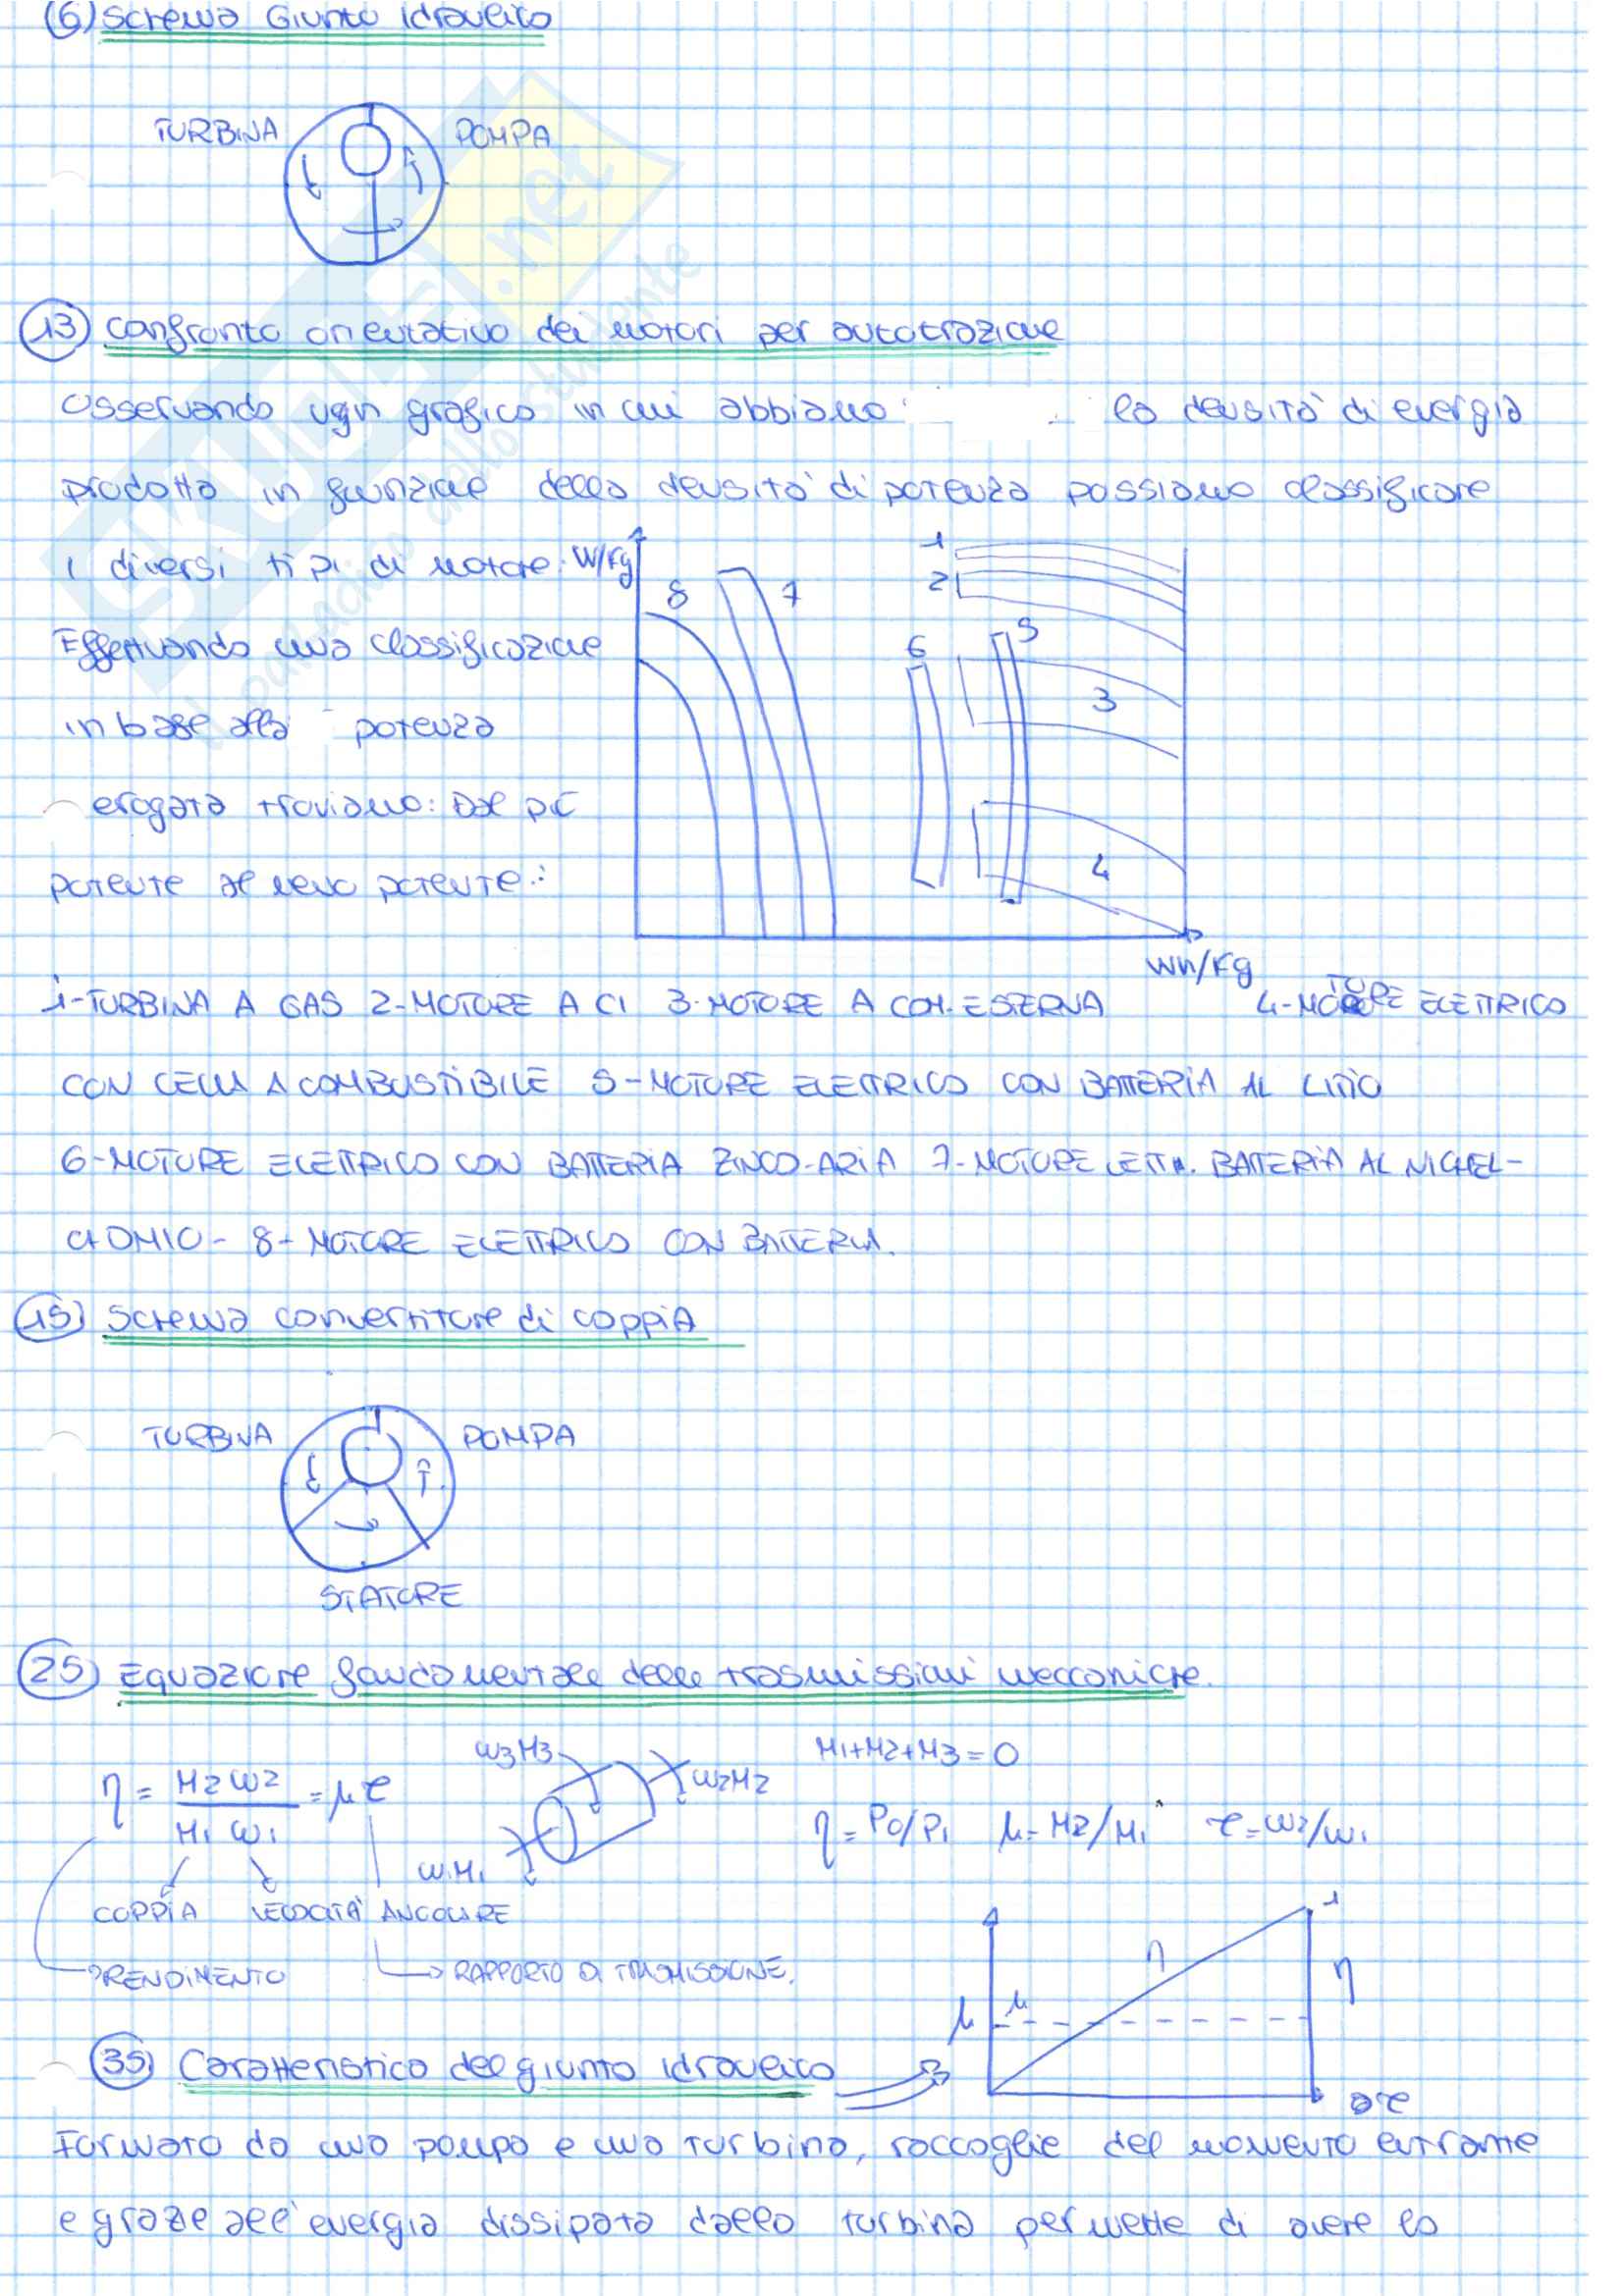 (6) Schema Giunto idraulico
TURBINA POMPA
13) Confronto orientativo dei motori per autotrazione
Osservando ugn grafico in cui abbiamo la densità di energia
prodotta in funzione della densità di potenza possiamo classificare
i diversi tipi di motore: W/Kg
8 7 1 2
Effettuando una classificazione
6 5 3
in base alla potenza
erogata troviamo: Dal più
potente al meno potente:
4
Wh/Kg
1-TURBINA A GAS 2-MOTORE A CI 3-MOTORE A COM. ESTERNA 4-MOTORE ELETTRICO
CON CELLA A COMBUSTIBILE 5-MOTORE ELETTRICO CON BATTERIA AL LITIO
6-MOTORE ELETTRICO CON BATTERIA ZINCO-ARIA 7-MOTORE LETTR. BATTERIA AL NICHEL-
CADMIO- 8-MOTORE ELETTRICO CON BATTERIA.
15) Schema convertitore di coppia
TURBINA POMPA
STATORE
25) Equazione fondamentale delle trasmissioni meccaniche.
η = M2ω2 / M1ω1 = μτ
ω3M3 ω2M2 ω1M1
M1+M2+M3=0
η=P0/P1 μ=M2/M1 τ=ω2/ω1
COPPIA VELOCITÀ ANGOLARE
RENDIMENTO RAPPORTO DI TRASMISSIONE.
1 η η μ μ
35) Caratteristica del giunto idraulico
Formato da una pompa e una turbina, raccoglie del momento entrante
e grazie all'energia dissipata dalla turbina permette di avere la